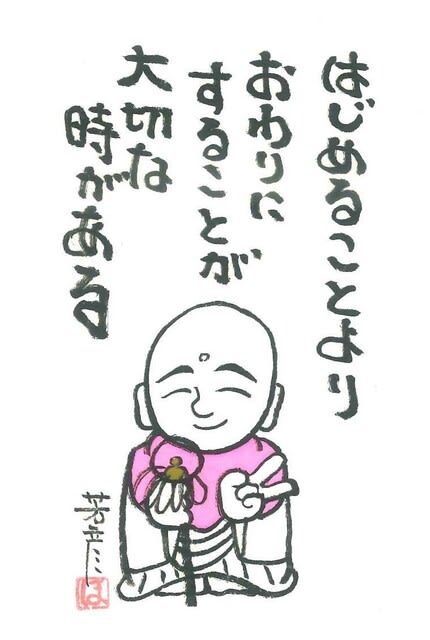 はじめることより
おわりに
することが
大切な
時がある
ほ